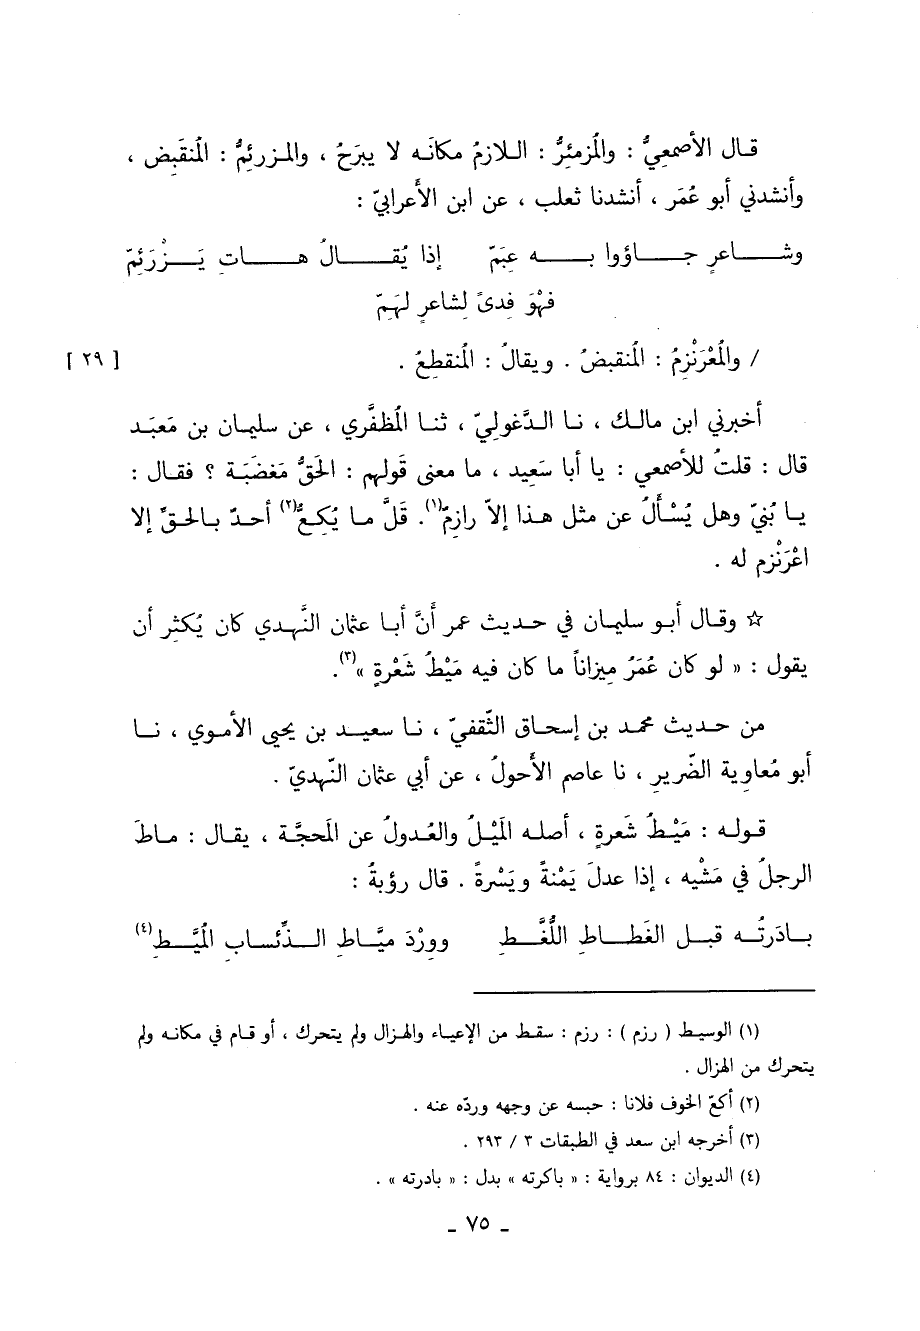 قال الأصمعيُّ : والمُزمئِرُّ : اللازمُ مكانَه لا يبرَحُ ، والمزرئِمُّ : المُنقَبِض ،
وأنشدني أبو عُمَر ، أنشدنا ثعلب ، عن ابن الأعرابيّ :
وشاعرٍ جاؤوا به عِبَمّ إذا يُقالُ هاتِ يَزْرَئِمّ
فهْوَ فِدىً لِشاعرٍ لِهَمّ
/ والمُعْرَنْزِمُ : المُنقبضُ . ويقالُ : المُنقطعُ . [ ٢٩ ]
أخبرني ابن مالك ، نا الدَّغولِيّ ، ثنا المُظفَّري ، عن سليمان بن مَعبَد
قال : قلتُ للأصمعي : يا أبا سَعِيد ، ما معنى قَولهم : الحَقُّ مَغضَبَة ؟ فقال :
يا بُنيّ وهل يُسْأَلُ عن مثل هذا إلاّ رازِمٌ(١). قَلَّ ما يُكِعُّ(٢) أحدٌ بالحقِّ إلا
اعْرَنْزم له .
☆ وقال أبو سليمان في حديث عمر أنَّ أبا عثمان النَّهدي كان يُكثِر أن
يقول : « لو كان عُمَرُ مِيزاناً ما كان فيه مَيْطُ شَعْرةٍ »(٣).
من حديث محمد بن إسحاق الثّقفيّ ، نا سعيد بن يحيى الأموي ، نا
أبو مُعاوية الضّرير ، نا عاصم الأحولُ ، عن أبي عثمان النّهديّ .
قوله : مَيْطُ شَعرةٍ ، أصله المَيْلُ والعُدولُ عن المَحجَّة ، يقال : ماطَ
الرجلُ في مَشْيِه ، إذا عدلَ يَمْنةً ويَسْرةً . قال رؤبةُ :
بادَرتُه قبل الغَطاطِ اللُّغَّطِ ووِرْدَ ميَّاطِ الذِّئابِ المُيَّطِ(٤)
(١) الوسيط ( رزم ) : رزم : سقط من الإعياء والهزال ولم يتحرك ، أو قام في مكانه ولم
يتحرك من الهزال .
(٢) أكعّ الخوف فلانا : حبسه عن وجهه وردّه عنه .
(٣) أخرجه ابن سعد في الطبقات ٣ / ٢٩٣ .
(٤) الديوان : ٨٤ برواية : « باكرته » بدل : « بادرته » .
_ ٧٥ _